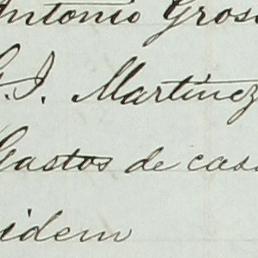 Antonio Gros
G. J. Martinez
Gastos de casa
idem